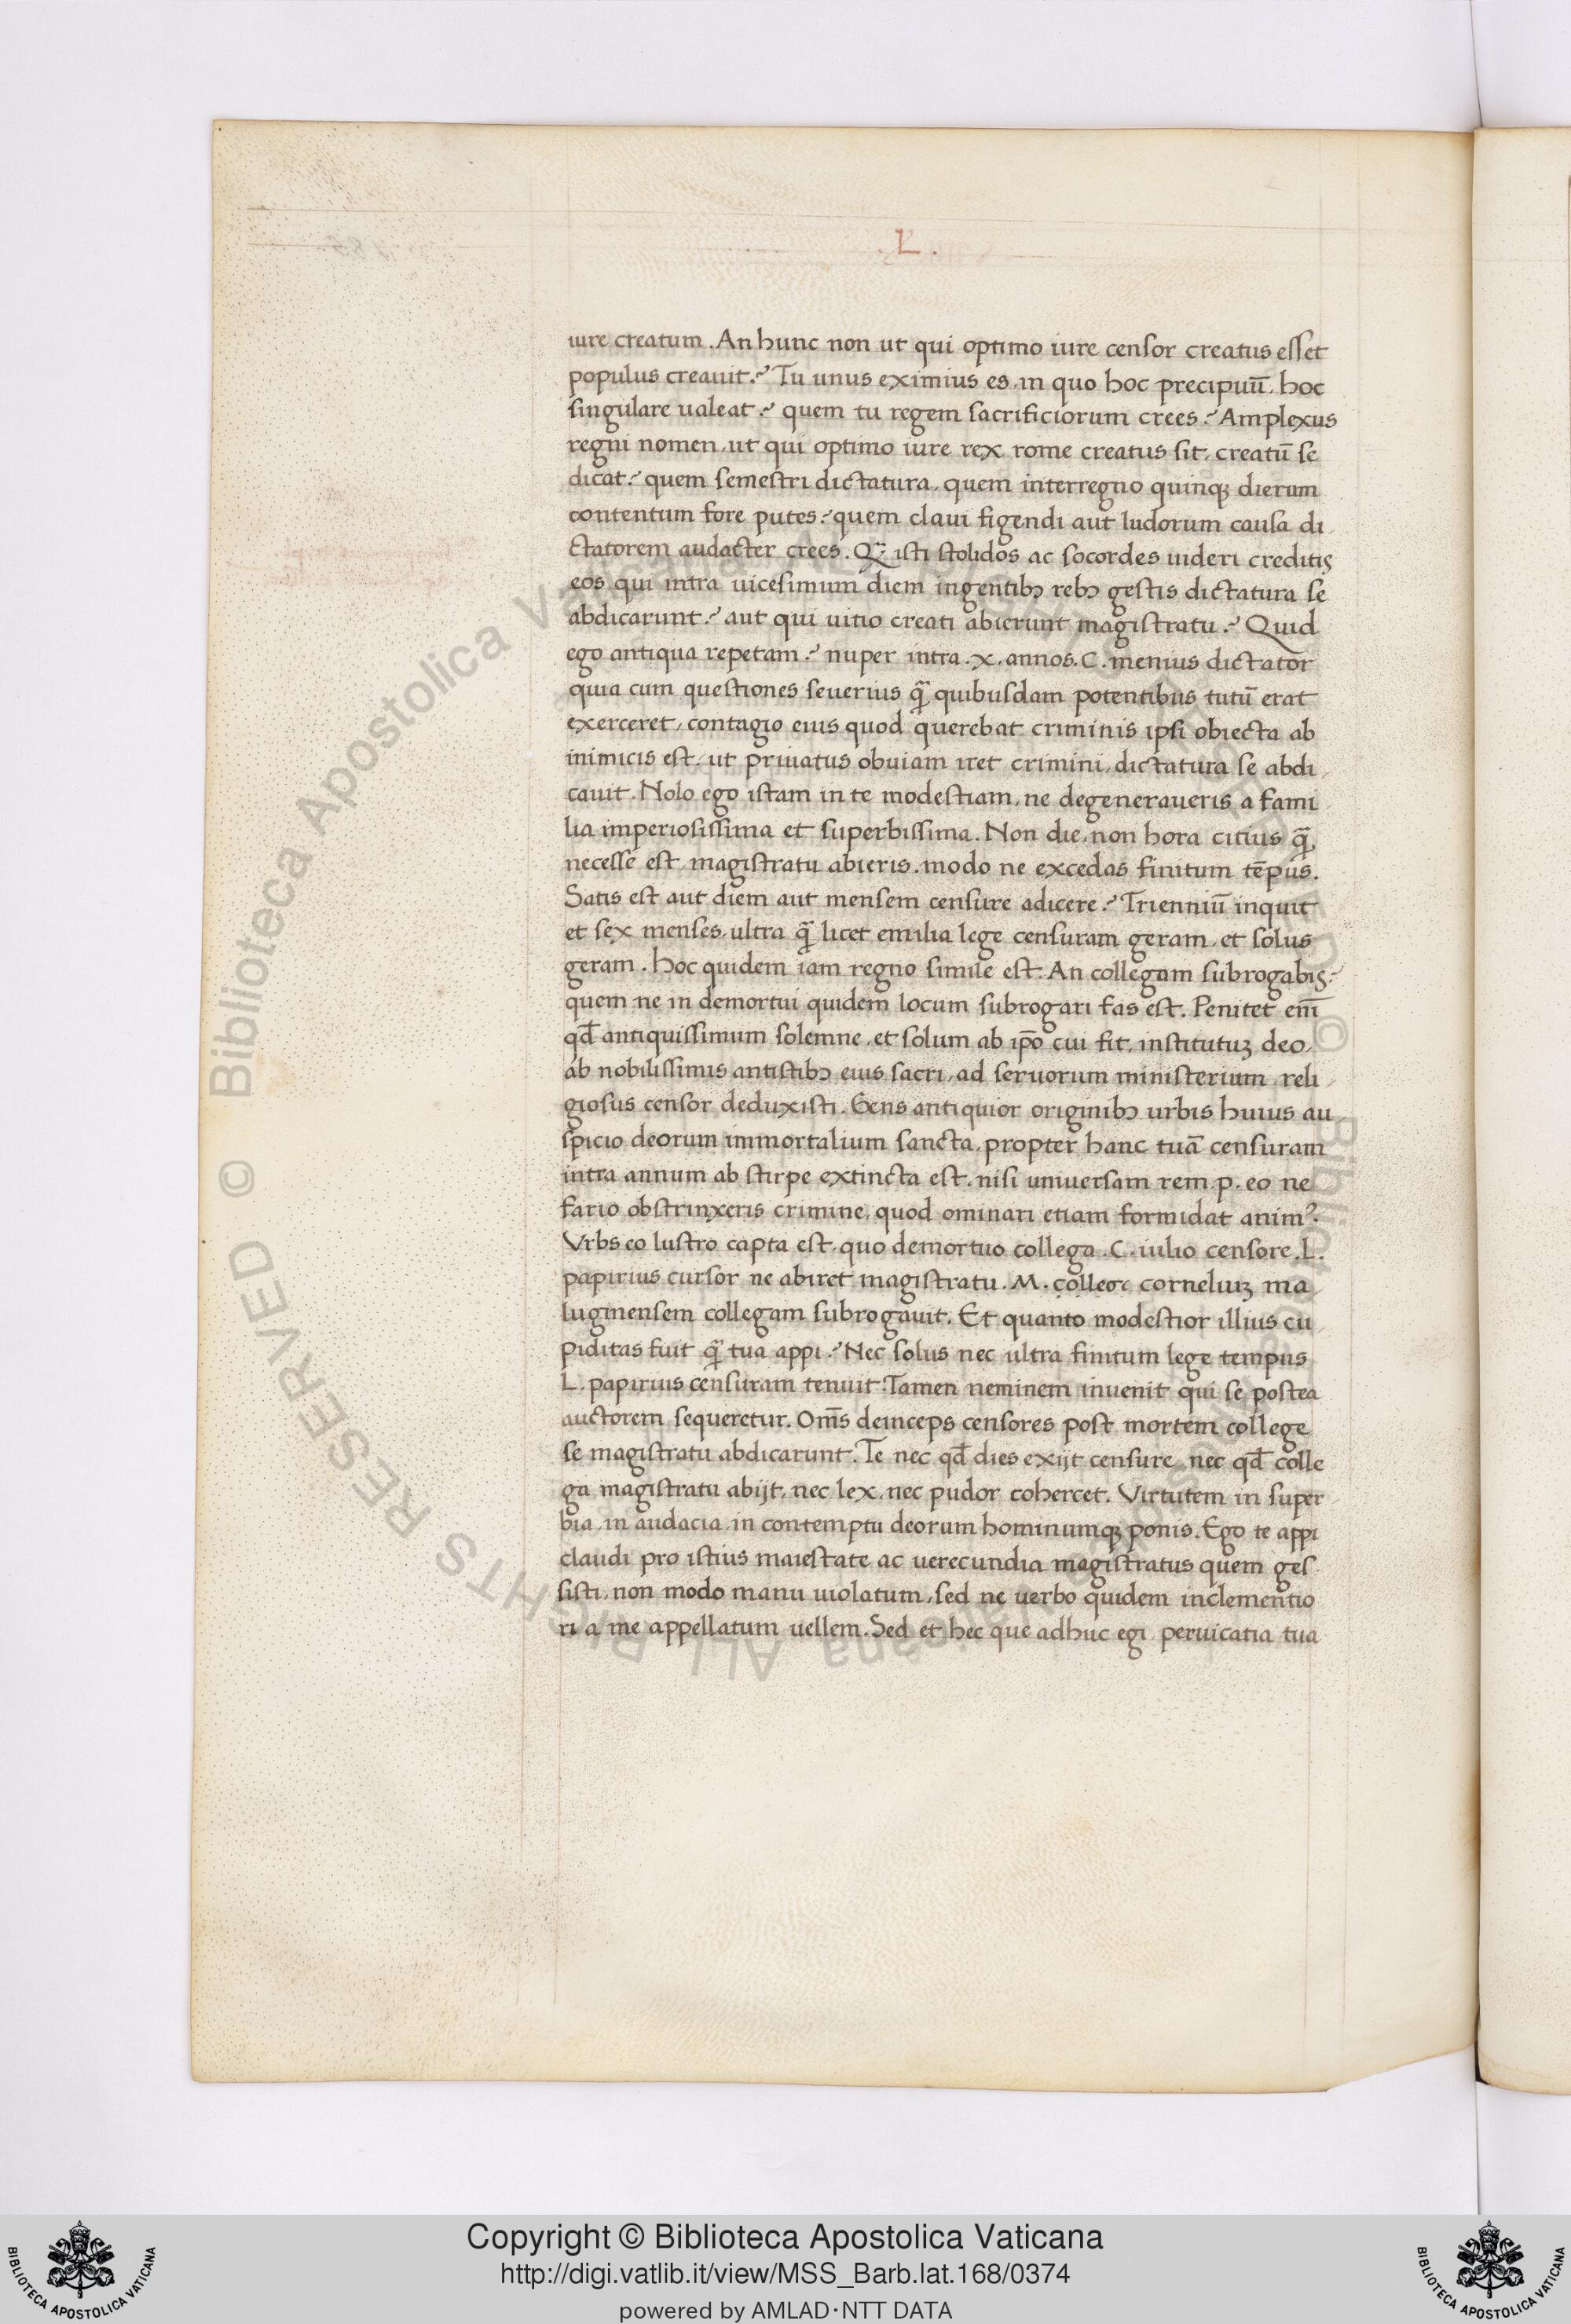 .L.
iure creatum. An hunc non ut qui optimo iure censor creatus esset
populus creauit? Tu unus eximius es, in quo hoc precipuū, hoc
singulare ualeat? quem tu regem sacrificiorum crees? Amplexus
regni nomen, ut qui optimo iure rex rome creatus sit, creatū se
dicat? quem semestri dictatura, quem interregno quinqꝫ dierum
contentum fore putes? quem claui figendi aut ludorum causa di
ctatorem audacter crees. Qᷓ isti stolidos ac socordes uideri creditis
eos qui intra uicesimum diem ingentibꝰ rebꝰ gestis dictatura se
abdicarunt? aut qui uitio creati abierunt magistratu? Quid
ego antiqua repetam? nuper intra .x. annos .C. menius dictator
quia cum questiones seuerius qᷓ quibusdam potentibus tutū erat
exerceret, contagio eius quod querebat criminis ipsi obiecta ab
inimicis est, ut priuatus obuiam iret crimini, dictatura se abdi
cauit. Nolo ego istam in te modestiam, ne degeneraueris a fami
lia imperiosissima et superbissima. Non die, non hora citius qᷓ,
necesse est magistratu abieris. modo ne excedas finitum tēpus.
Satis est aut diem aut mensem censure adicere? Trienniū inquit
et sex menses, ultra qᷓ licet emilia lege censuram geram, et solus
geram. hoc quidem iam regno simile est. An collegam subrogabis?
quem ne in demortui quidem locum subrogari fas est. Penitet enī
qđ antiquissimum solemne, et solum ab ip̄o cui fit, institutuꝫ deo,
ab nobilissimis antistibꝰ eius sacri, ad seruorum ministerium reli
giosus censor deduxisti. Gens antiquior originibꝰ urbis huius au
spicio deorum immortalium sancta, propter hanc tuā censuram
intra annum ab stirpe extincta est. nisi uniuersam rem .p. eo ne
fario obstrinxeris crimine, quod ominari etiam formidat animꝰ.
Vrbs eo lustro capta est, quo demortuo collega .C. iulio censore .L.
papirius cursor ne abiret magistratu .M. corneliuꝫ ma
luginensem collegam subrogauit. Et quanto modestior illius cu
piditas fuit qᷓ tua appi? Nec solus nec ultra finitum lege tempus
L. papirius censuram tenuit. Tamen neminem inuenit qui se postea
auctorem sequeretur. Om̄s deinceps censores post mortem college
se magistratu abdicarunt. Te nec qđ dies exijt censure, nec qđ colle
ga magistratu abijt, nec lex, nec pudor cohercet. Virtutem in super
bia, in audacia, in contemptu deorum hominumqꝫ ponis. Ego te appi
claudi pro istius maiestate ac uerecundia magistratus quem ges
sisti, non modo manu uiolatum, sed ne uerbo quidem inclementio
ri a me appellatum uellem. Sed et hec que adhuc egi peruicatia tua
© Biblioteca Apostolica Vaticana ALL RIGHTS RESERVED
Copyright © Biblioteca Apostolica Vaticana
http://digi.vatlib.it/view/MSS_Barb.lat.168/0374
powered by AMLAD·NTT DATA
BIBLIOTECA APOSTOLICA VATICANA
BIBLIOTECA APOSTOLICA VATICANA